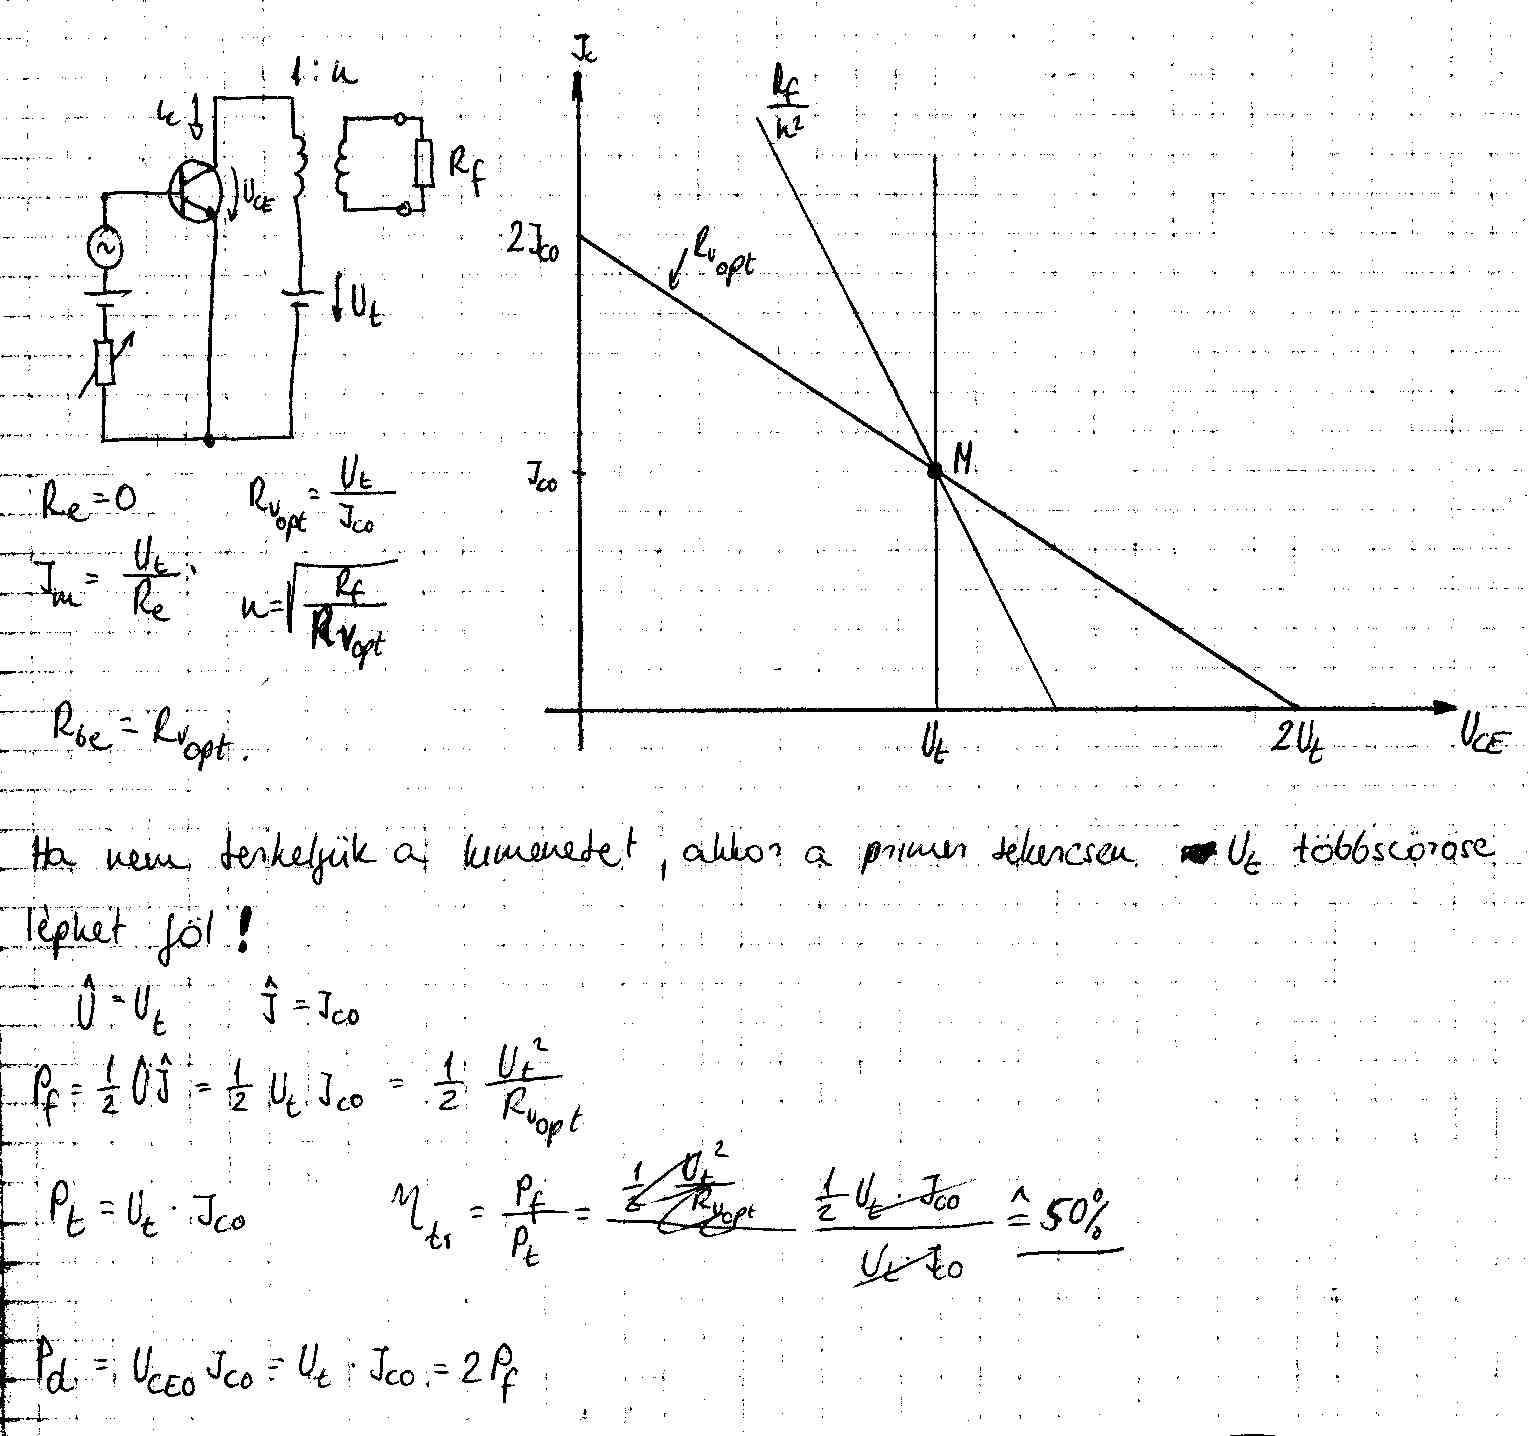 1:n
i_c
U_CE
R_f
U_t
I_c
R_f/n²
2I_C0
R_v opt
I_C0
M
U_t
2U_t
U_CE
R_e = 0
R_v opt = U_t/I_C0
I_m = U_t/R_e
n = √(R_f/R_v opt)
R_be = R_v opt.
Ha nem terheljük a kimenetet, akkor a primer tekercsen U_t többszöröse
léphet föl!
Û = U_t Î = I_C0
P_f = 1/2 Û Î = 1/2 U_t I_C0 = 1/2 U_t²/R_v opt
P_t = U_t · I_C0 η_tr = P_f/P_t = (1/2 U_t · I_C0)/(U_t · I_C0) ≙ 50%
P_d = U_CE0 I_C0 = U_t · I_C0 = 2 P_f